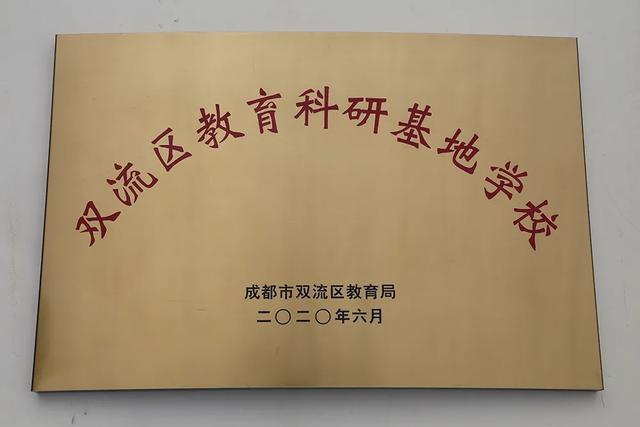 双流区教育科研基地学校
成都市双流区教育局
二〇二〇年六月